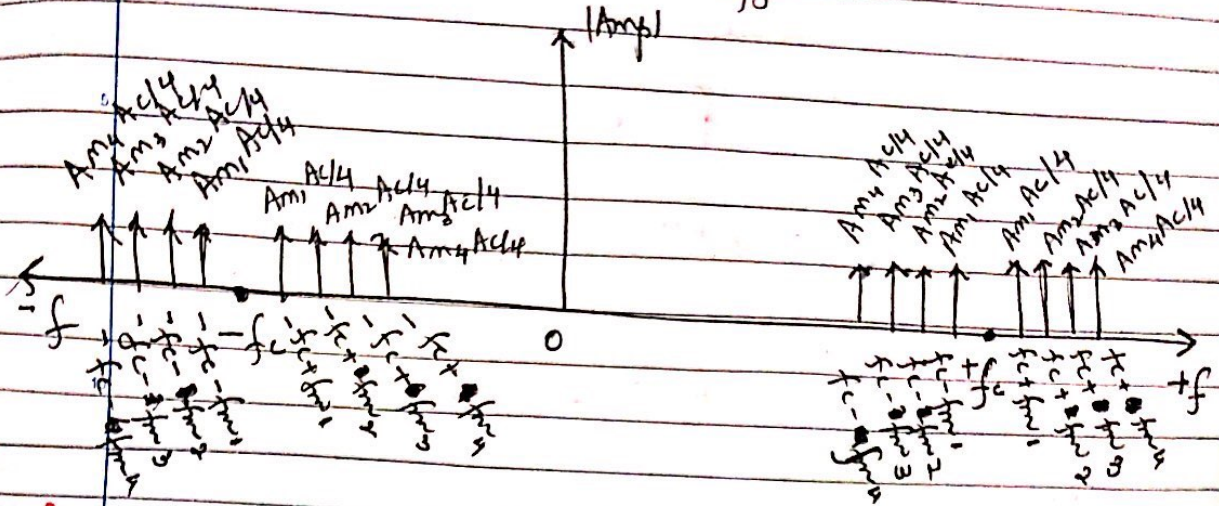 |Amp|
Am4 Ac/4
Am3 Ac/4
Am2 Ac/4
Am1 Ac/4
Am1 Ac/4
Am2 Ac/4
Am3 Ac/4
Am4 Ac/4
Am4 Ac/4
Am3 Ac/4
Am2 Ac/4
Am1 Ac/4
Am1 Ac/4
Am2 Ac/4
Am3 Ac/4
Am4 Ac/4
-f
-fc-fm4
-fc-fm3
-fc-fm2
-fc-fm1
-fc
-fc+fm1
-fc+fm2
-fc+fm3
-fc+fm4
0
fc-fm4
fc-fm3
fc-fm2
fc-fm1
+fc
fc+fm1
fc+fm2
fc+fm3
fc+fm4
+f